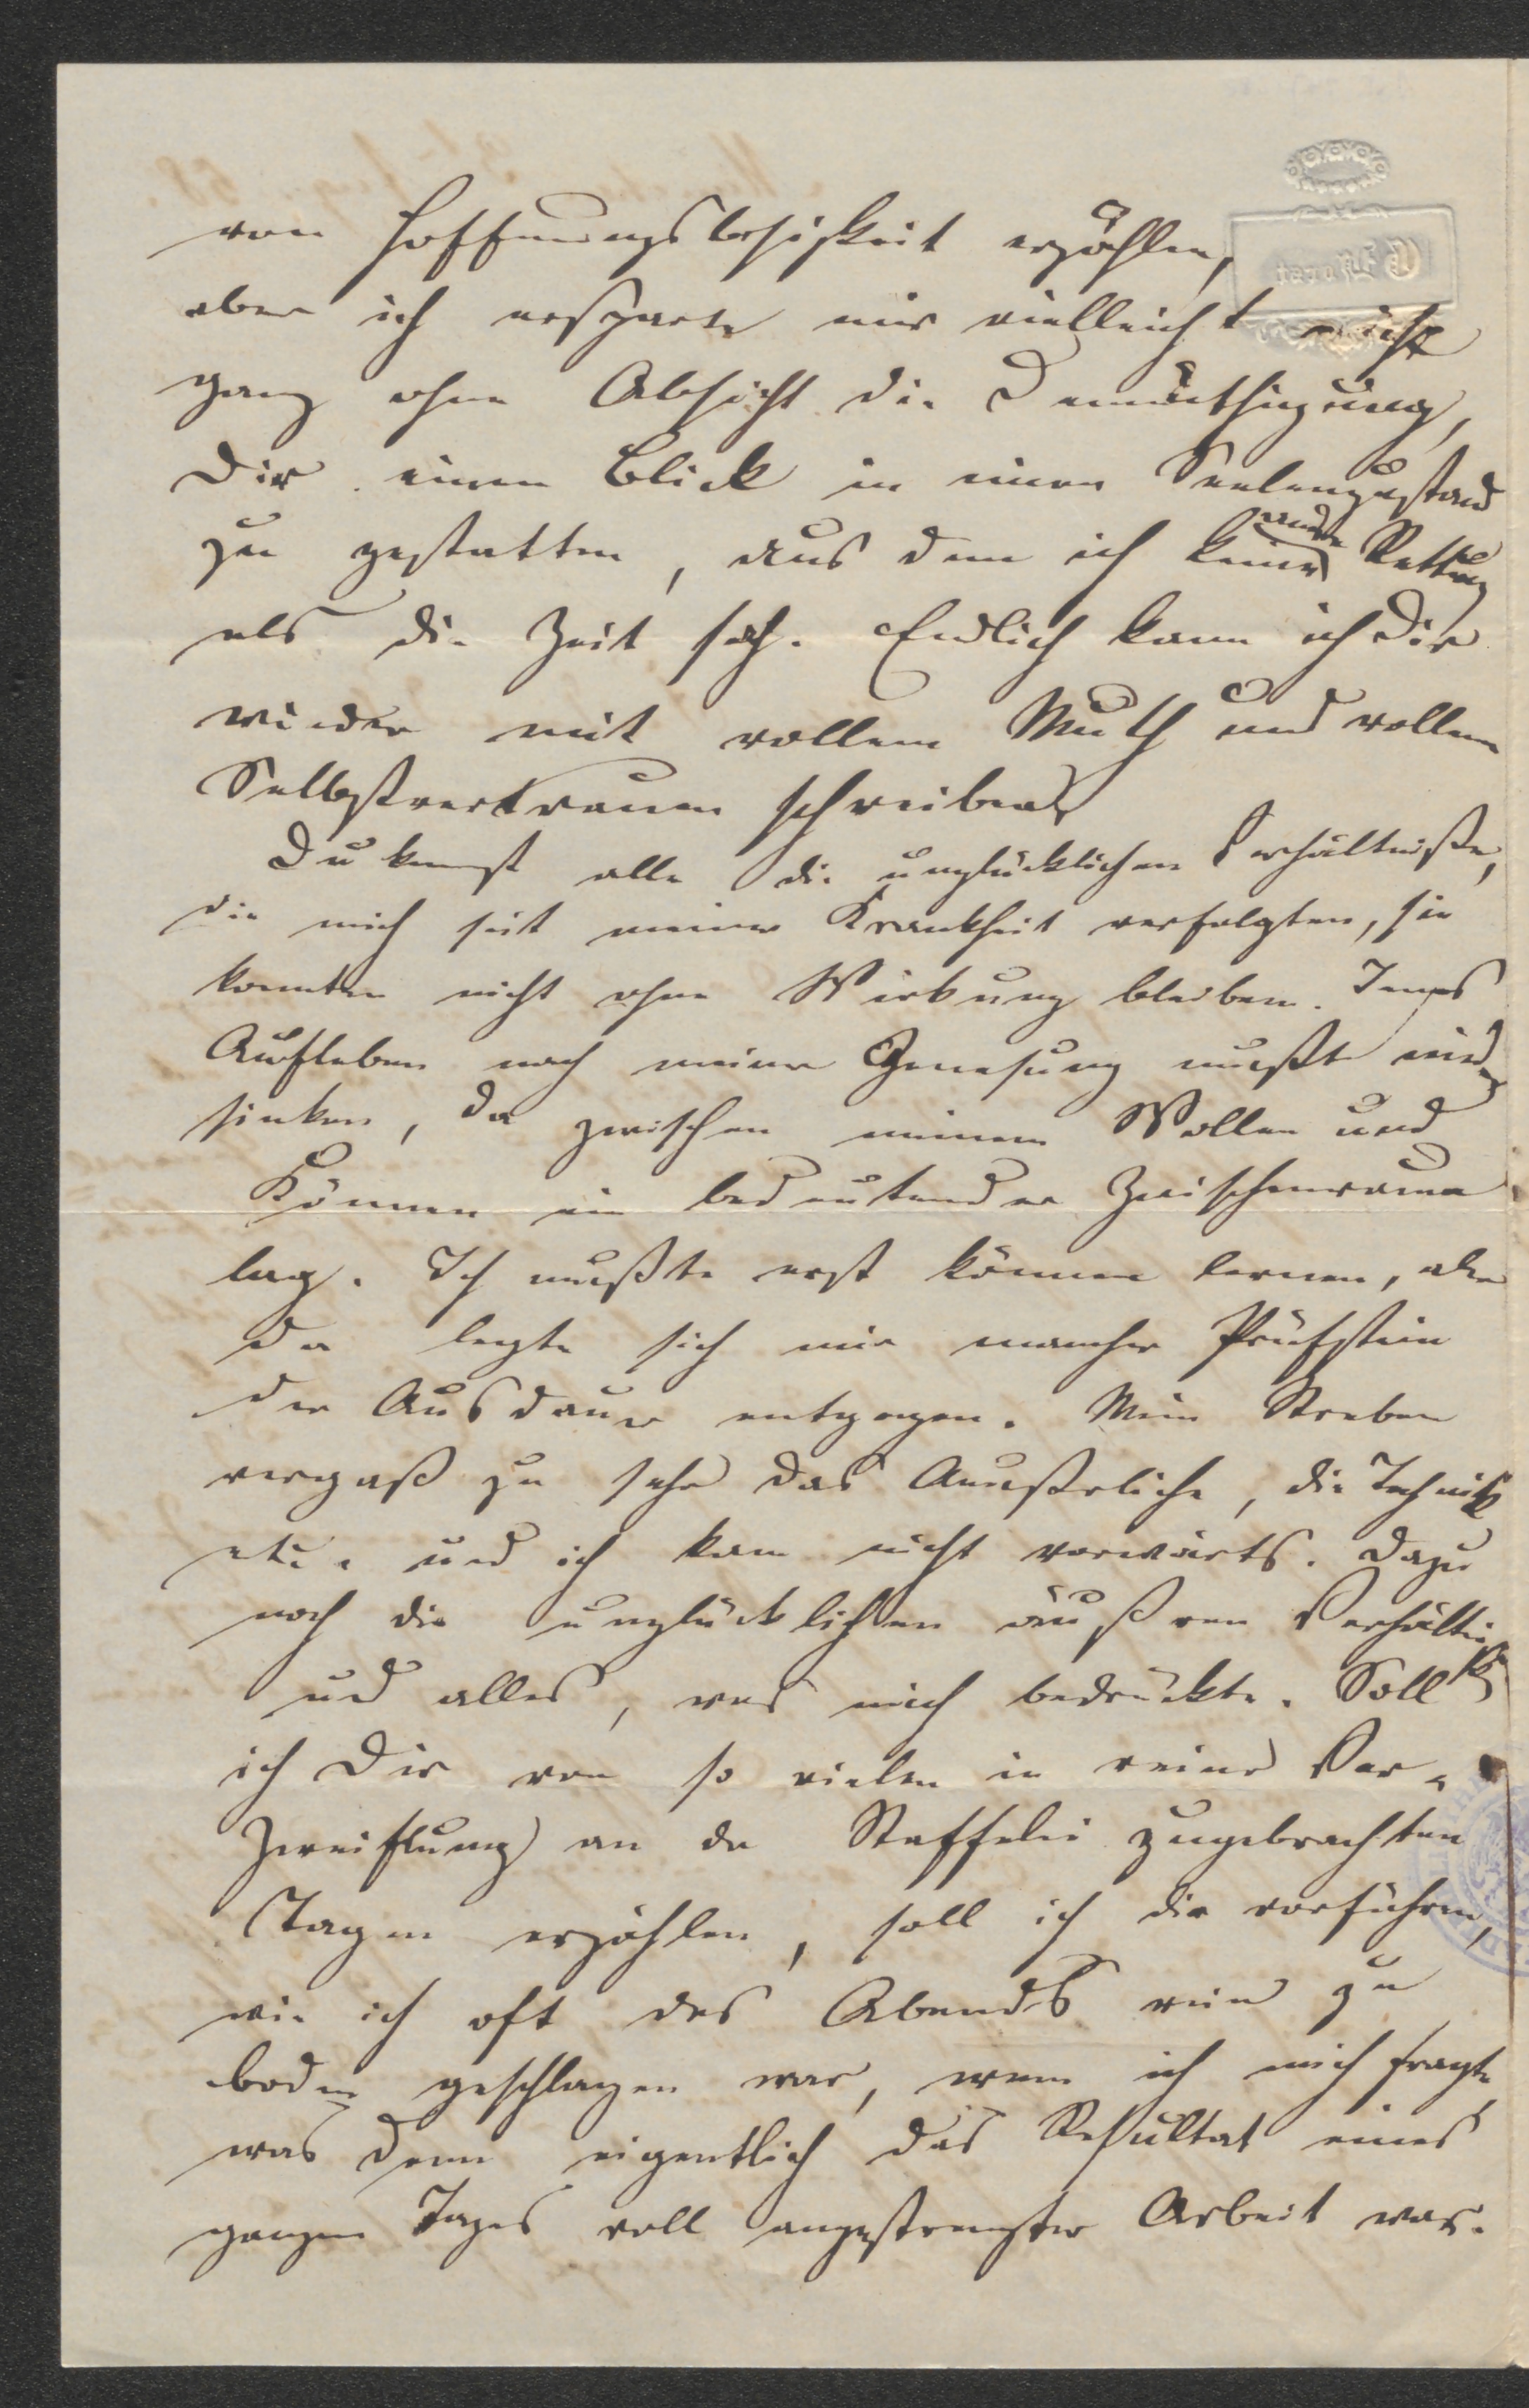 von Hoffnungslosigkeit erzählen,
aber ich ersparte mir vielleicht nicht
ganz ohne Absicht die Demüthigung,
Dir einen Blick in einen Seelenzustand
zu gestatten, aus dem ich keine andre Rettung
als die Zeit sah. Endlich kann ich Dir
wieder mit vollem Muth und vollem
Selbstvertrauen schreiben.
Du kennst alle die unglücklichen Verhältniße,
die mich seit meiner Krankheit verfolgten, sie
konnten nicht ohne Wirkung bleiben. Jenes
Aufleben nach meiner Genesung mußte
sinken, da zwischen meinem Wollen und
Können ein bedeutender Zwischenraum
lag. Ich mußte erst können lernen, aber
da legte sich mir mancher Prüfstein
der Ausdauer entgegen. Mein Streben
vergaß zu sehr das Aeußerliche, die Technik
etc. und ich kam nicht vorwärts. Dazu
noch die unglücklichen äußren Verhältniße
und alles, was mich bedrückte. Soll
ich Dir von so vielen in reiner Ver-
zweiflung an der Staffelei zugebrachten
Tagen erzählen, soll ich dir vorführen,
wie ich oft des Abends rein zu
boden geschlagen war, wenn ich mich fragte
was denn eigentlich das Resultat eines
ganzen Tages voll angestrengter Arbeit war.